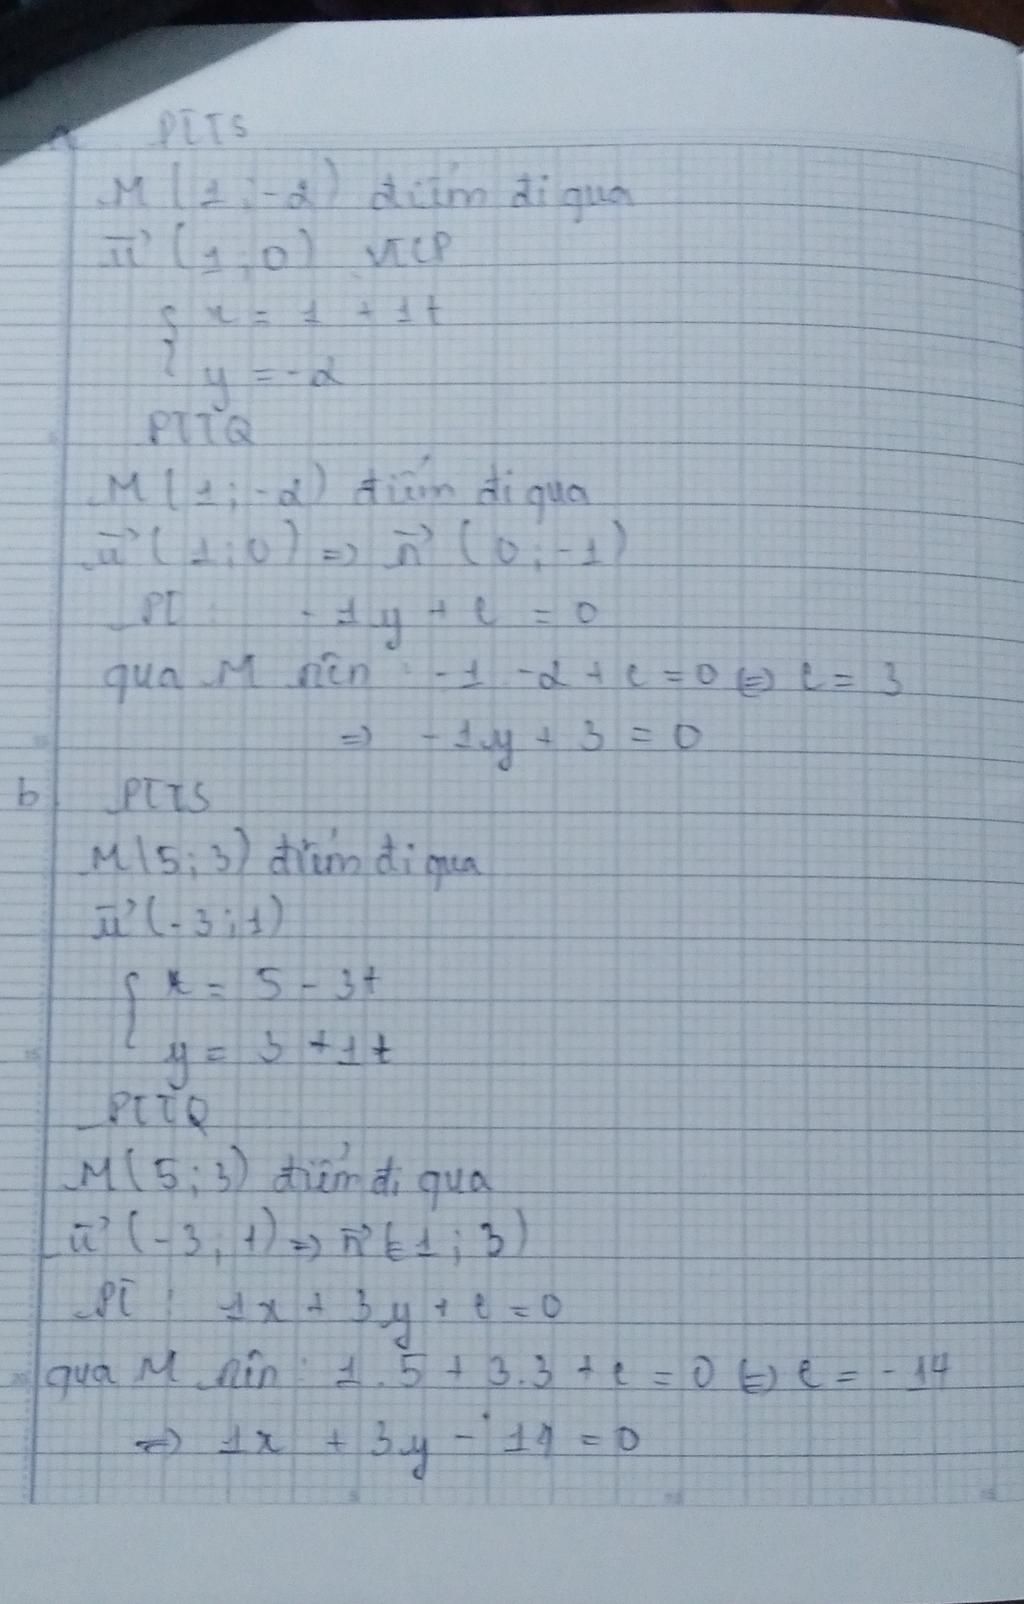 a PTTS
M (1 ; -2) điểm đi qua
u⃗ (1 ; 0) VTCP
{ x = 1 + 1t
y = -2
PTTQ
M (1 ; -2) điểm đi qua
u⃗ (1 ; 0) => n⃗ (0 ; -1)
PT : -1y + c = 0
qua M nên : -1 -2 + c = 0 <=> c = 3
=> -1y + 3 = 0
b PTTS
M (5 ; 3) điểm đi qua
u⃗ (-3 ; 1)
{ x = 5 - 3t
y = 3 + 1t
PTTQ
M (5 ; 3) điểm đi qua
u⃗ (-3 ; 1) => n⃗ (1 ; 3)
PT : 1x + 3y + c = 0
qua M nên : 1.5 + 3.3 + c = 0 <=> c = -14
=> 1x + 3y - 14 = 0